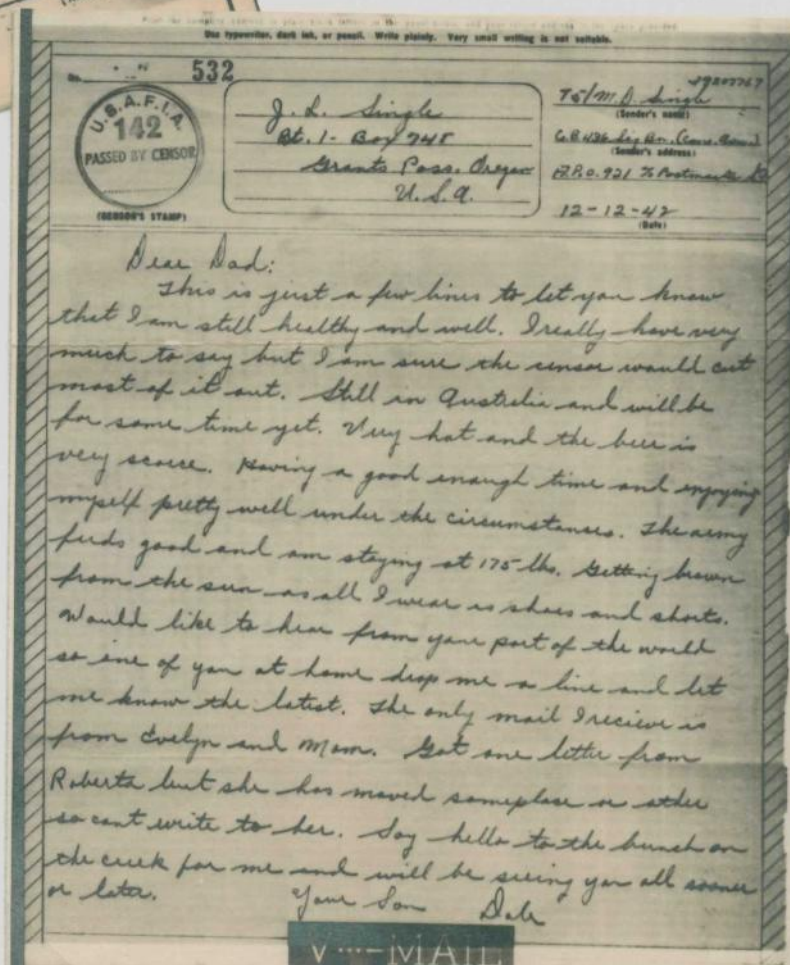 Use typewriter, dark ink, or pencil. Write plainly. Very small writing is not suitable.
No.
532
U.S.A.F.I.A.
142
PASSED BY CENSOR
(CENSOR'S STAMP)
J. L. Single
Rt. 1 - Box 748
Grants Pass, Oregon
U.S.A.
T5/M.D. Single
(Sender's name)
Co B 436 Sig Bn.
(Sender's address)
A.P.O. 921 % Postmaster
12-12-42
(Date)
Dear Dad:
This is just a few lines to let you know
that I am still healthy and well. I really have very
much to say but I am sure the censor would cut
most of it out. Still in Australia and will be
for some time yet. Very hot and the beer is
very scarce. Having a good enough time and enjoying
myself pretty well under the circumstances. The army
feeds good and am staying at 175 lbs. Getting brown
from the sun as all I wear is shoes and shorts.
Would like to hear from your part of the world
so one of you at home drop me a line and let
me know the latest. The only mail I recieve is
from Evelyn and Mom. Got one letter from
Roberta but she has moved someplace or other
so cant write to her. Say hello to the bunch on
the creek for me and will be seeing you all sooner
or later.
Your Son Dale
V···-MAIL